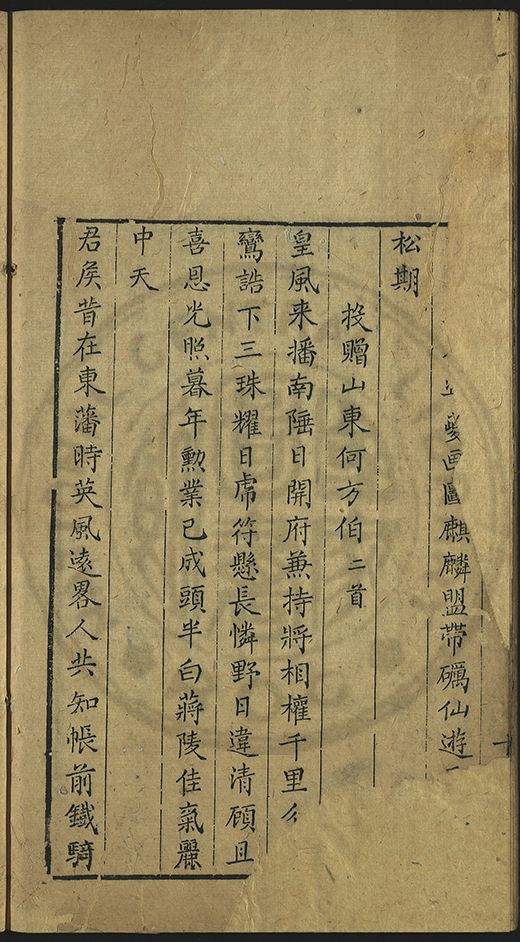 画圖麒麟盟帶礪仙遊
松期
投贈山東何方伯二首
皇風来播南陲日開府兼持將相權千里
鸞誥下三珠耀日虎符懸長憐野日違清顧且
喜恩光照暮年勲業已成頭半白蔣陵佳氣麗
中天
君矦昔在東藩時英風遠畧人共知帳前鐵騎